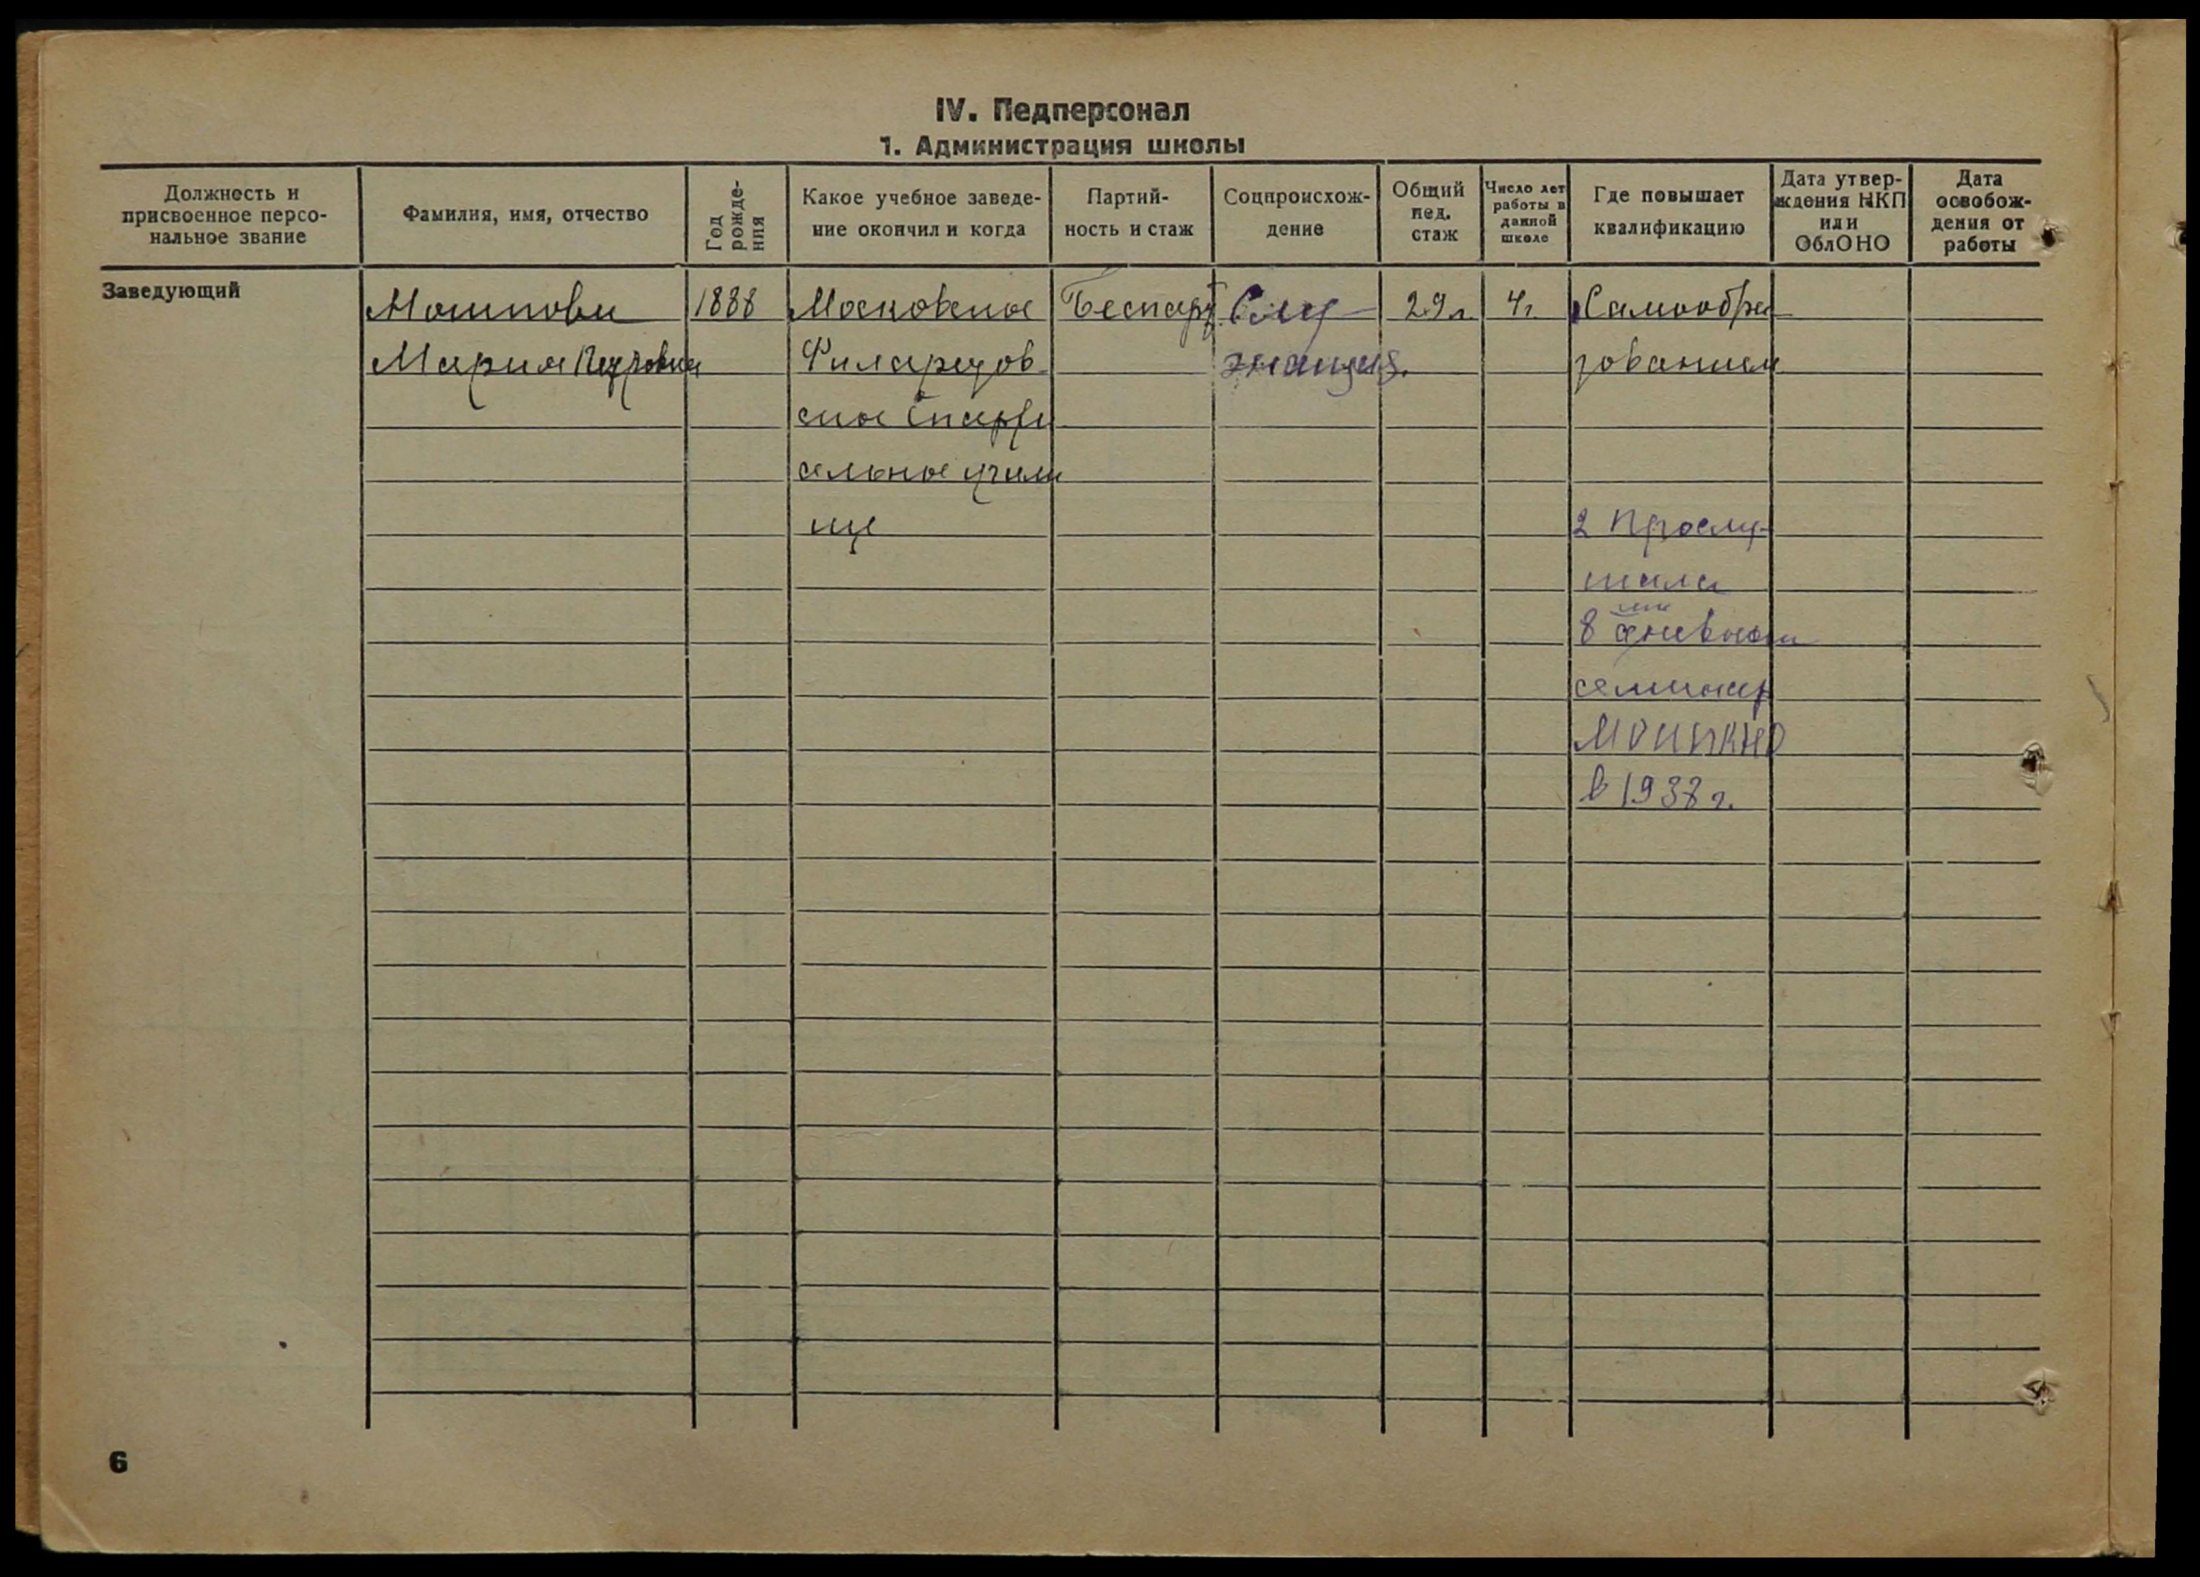 IV. Педперсонал
1. Администрация школы
Должность и
присвоенное персо-
нальное звание
Фамилия, имя, отчество
Год
рожде-
ния
Какое учебное заведе-
ние окончил и когда
Партий-
ность и стаж
Соцпроисхож-
дение
Общий
пед.
стаж
Число лет
работы в
данной
школе
Где повышает
квалификацию
Дата утвер-
ждения НКП
или
ОблОНО
Дата
освобож-
дения от
работы
Заведующий
Мария Петровна
1888
Московское
Филаретов
ское Епархи
ельное учили
ще
Беспарт
Слу
жащия.
29 л
4 г.
Самообра
зованием
2 Прослу-
шала
8 дневной
семинар
МОИПКНО
в 1938 г.
6